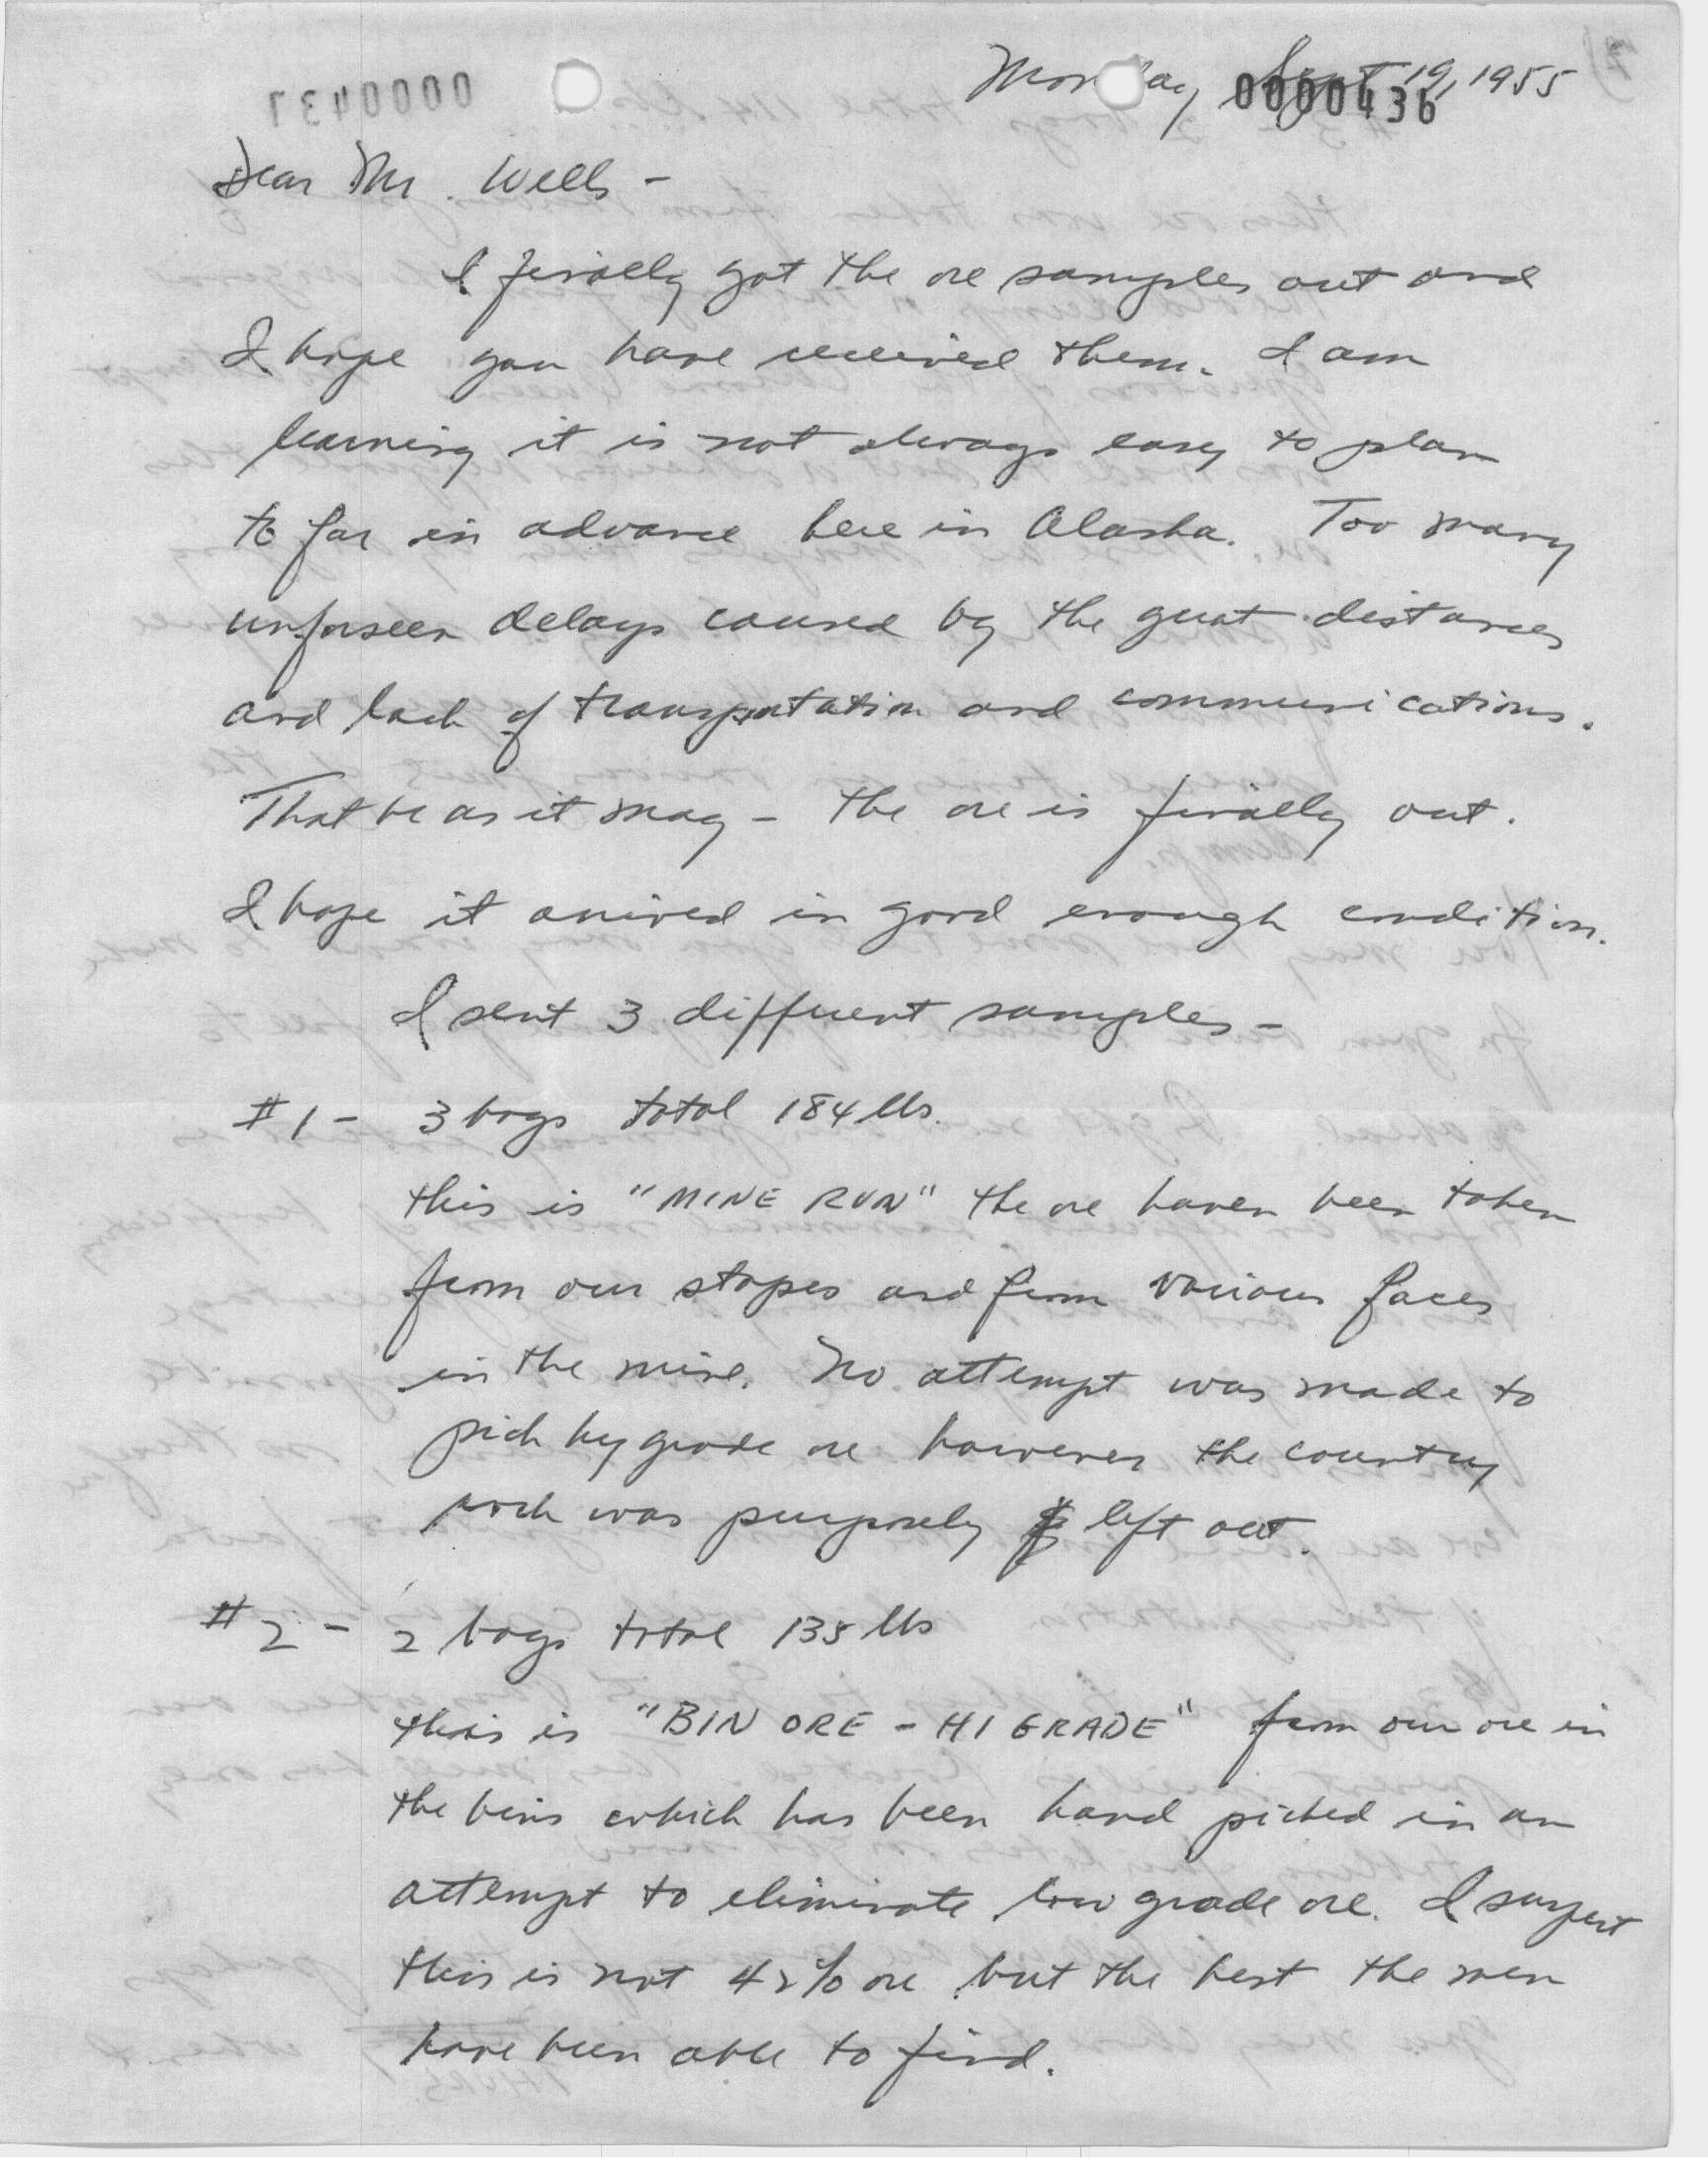 Monday Sept 19, 1955
0000436
0000437
Dear Mr. Wells -
I finally got the ore samples out and
I hope you have received them. I am
learning it is not always easy to plan
to far in advance here in Alaska. Too many
unforseen delays caused by the great distances
and lack of transportation and communications.
That be as it may - the ore is finally out.
I hope it arrived in good enough condition.
I sent 3 different samples -
#1 - 3 bags total 184 lbs.
this is "MINE RUN" the ore haven been taken
from our stopes and from various faces
in the mine. No attempt was made to
pick hygrade ore however the country
rock was purposely left out.
#2 - 2 bags total 135 lbs
this is "BIN ORE - HI GRADE" from our ore in
the bins which has been hand picked in an
attempt to eliminate low grade ore. I suspect
this is not 42% ore but the best the men
have been able to find.